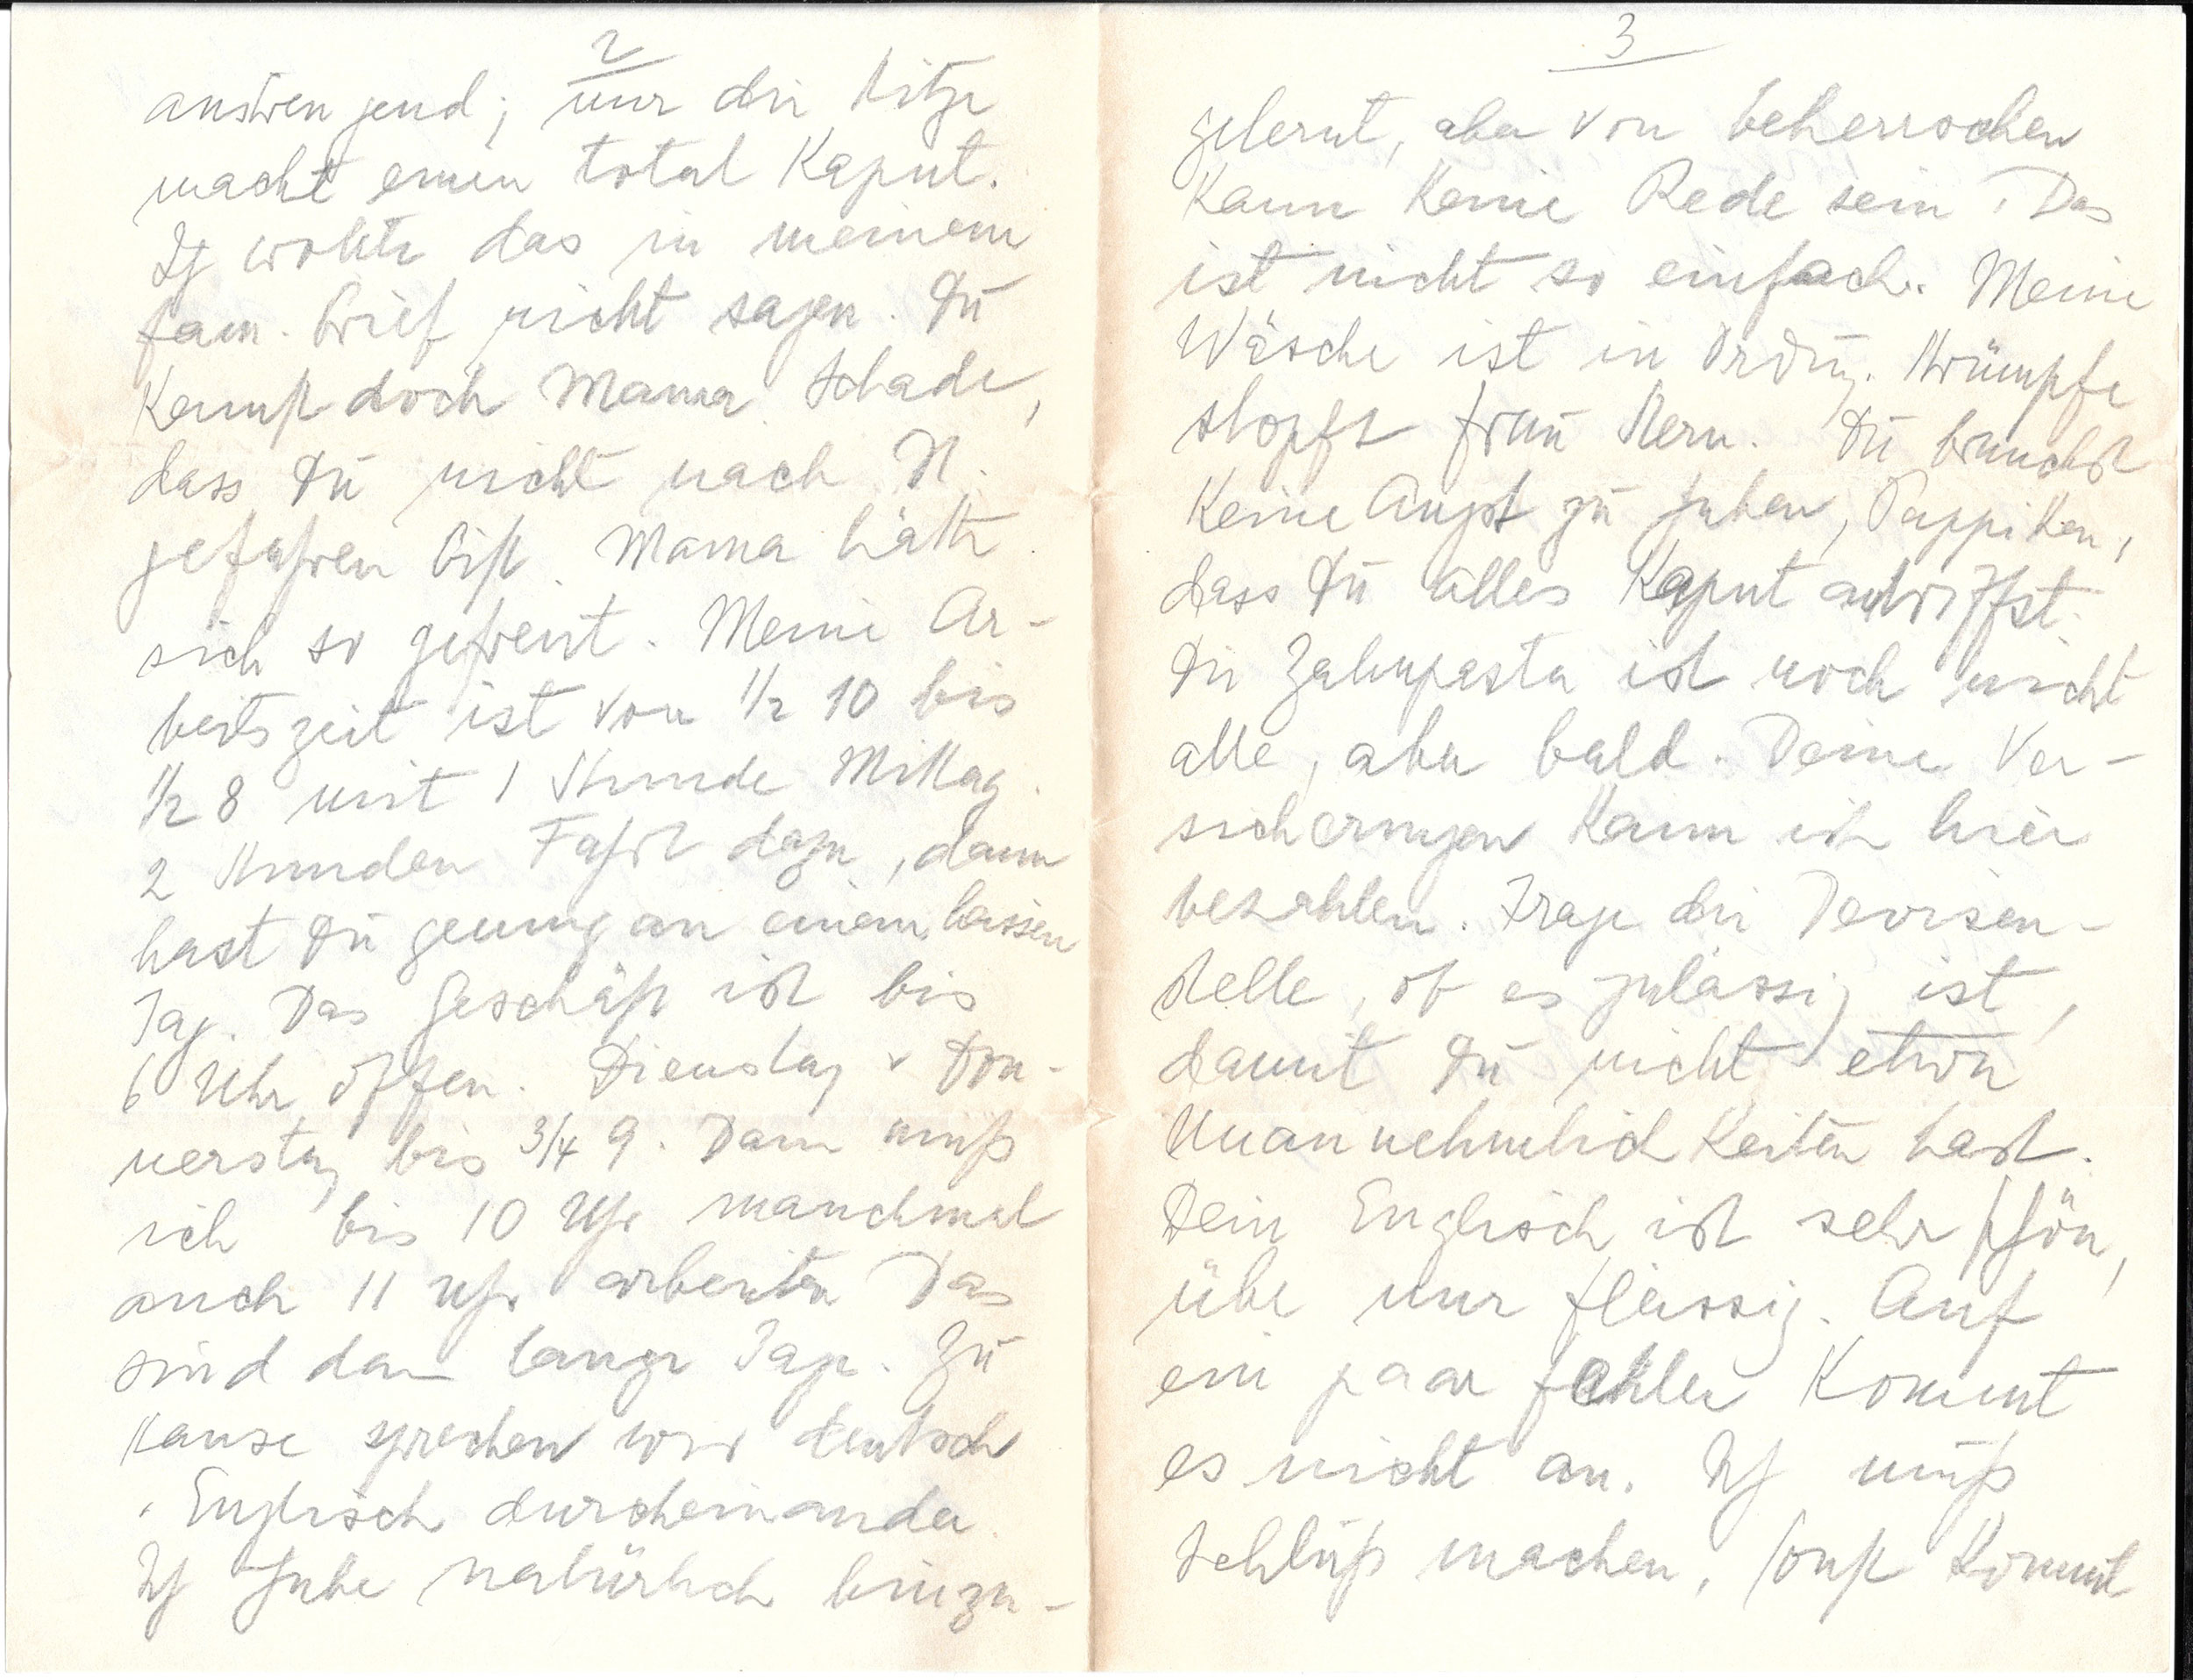 2
anstrengend; nur die Hitze
macht einen total Kaput.
Ich wollte das in meinem
fam. Brief nicht sagen. Du
Kennst doch Mama. Schade,
dass Du nicht nach N.
gefahren bist. Mama hätte
sich so gefreut. Meine Ar-
beitszeit ist von 1/2 10 bis
1/2 8 mit 1 Stunde Mittag.
2 Stunden Fahrt dazu, dann
hast Du genung an einem heissen
Tag. Das Geschäft ist bis
6 Uhr offen. Dienstag u Don-
nerstag bis 3/4 9. Dann muß
ich bis 10 Uhr manchmal
auch 11 Uhr arbeiten Das
sind dann lange Tage. Zu
Hause sprechen wir deutsch
. Englisch durcheinander.
Ich habe natürlich hinzu-
3
gelernt, aber von beherrschen
Kann Keine Rede sein. Das
ist nicht so einfach. Meine
Wäsche ist in Ordng. Strümpfe
stopft Frau Stern. Du brauchst
Keine Angst zu haben, Pappiken,
dass Du alles Kaput antriffst.
Die Zahnpasta ist noch nicht
alle, aber bald. Deine Ver-
sicherungen Kann ich hier
bezahlen. Frage die Devisen-
stelle, ob es zulässig ist,
damit Du nicht etwa
Unannehmlichkeiten hast.
Dein Englisch ist sehr schön,
übe nur fleissig. Auf
ein paar Fehler Kommt
es nicht an. Ich muß
Schluß machen, sonst Kommt